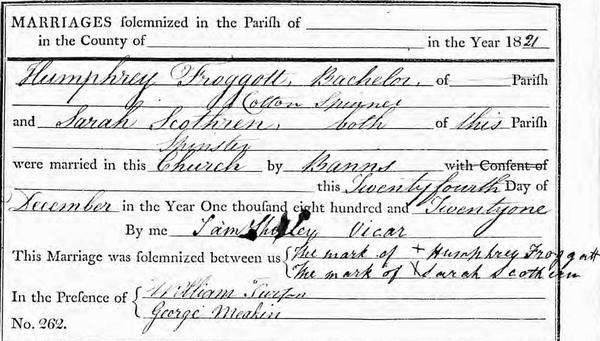 MARRIAGES solemnized in the Parish of
in the County of in the Year 1821
Humphrey Froggott, Bachelor, of Parish
Cotton Spinner
and Sarah Scothren, both of this Parish
Spinster
were married in this Church by Banns with Consent of
this Twentyfourth Day of
December in the Year One thousand eight hundred and Twentyone
By me Vicar
This Marriage was solemnized between us { The mark of + Humphrey Froggatt
The mark of X Sarah Scothern
In the Presence of { William
George Meakin
No. 262.